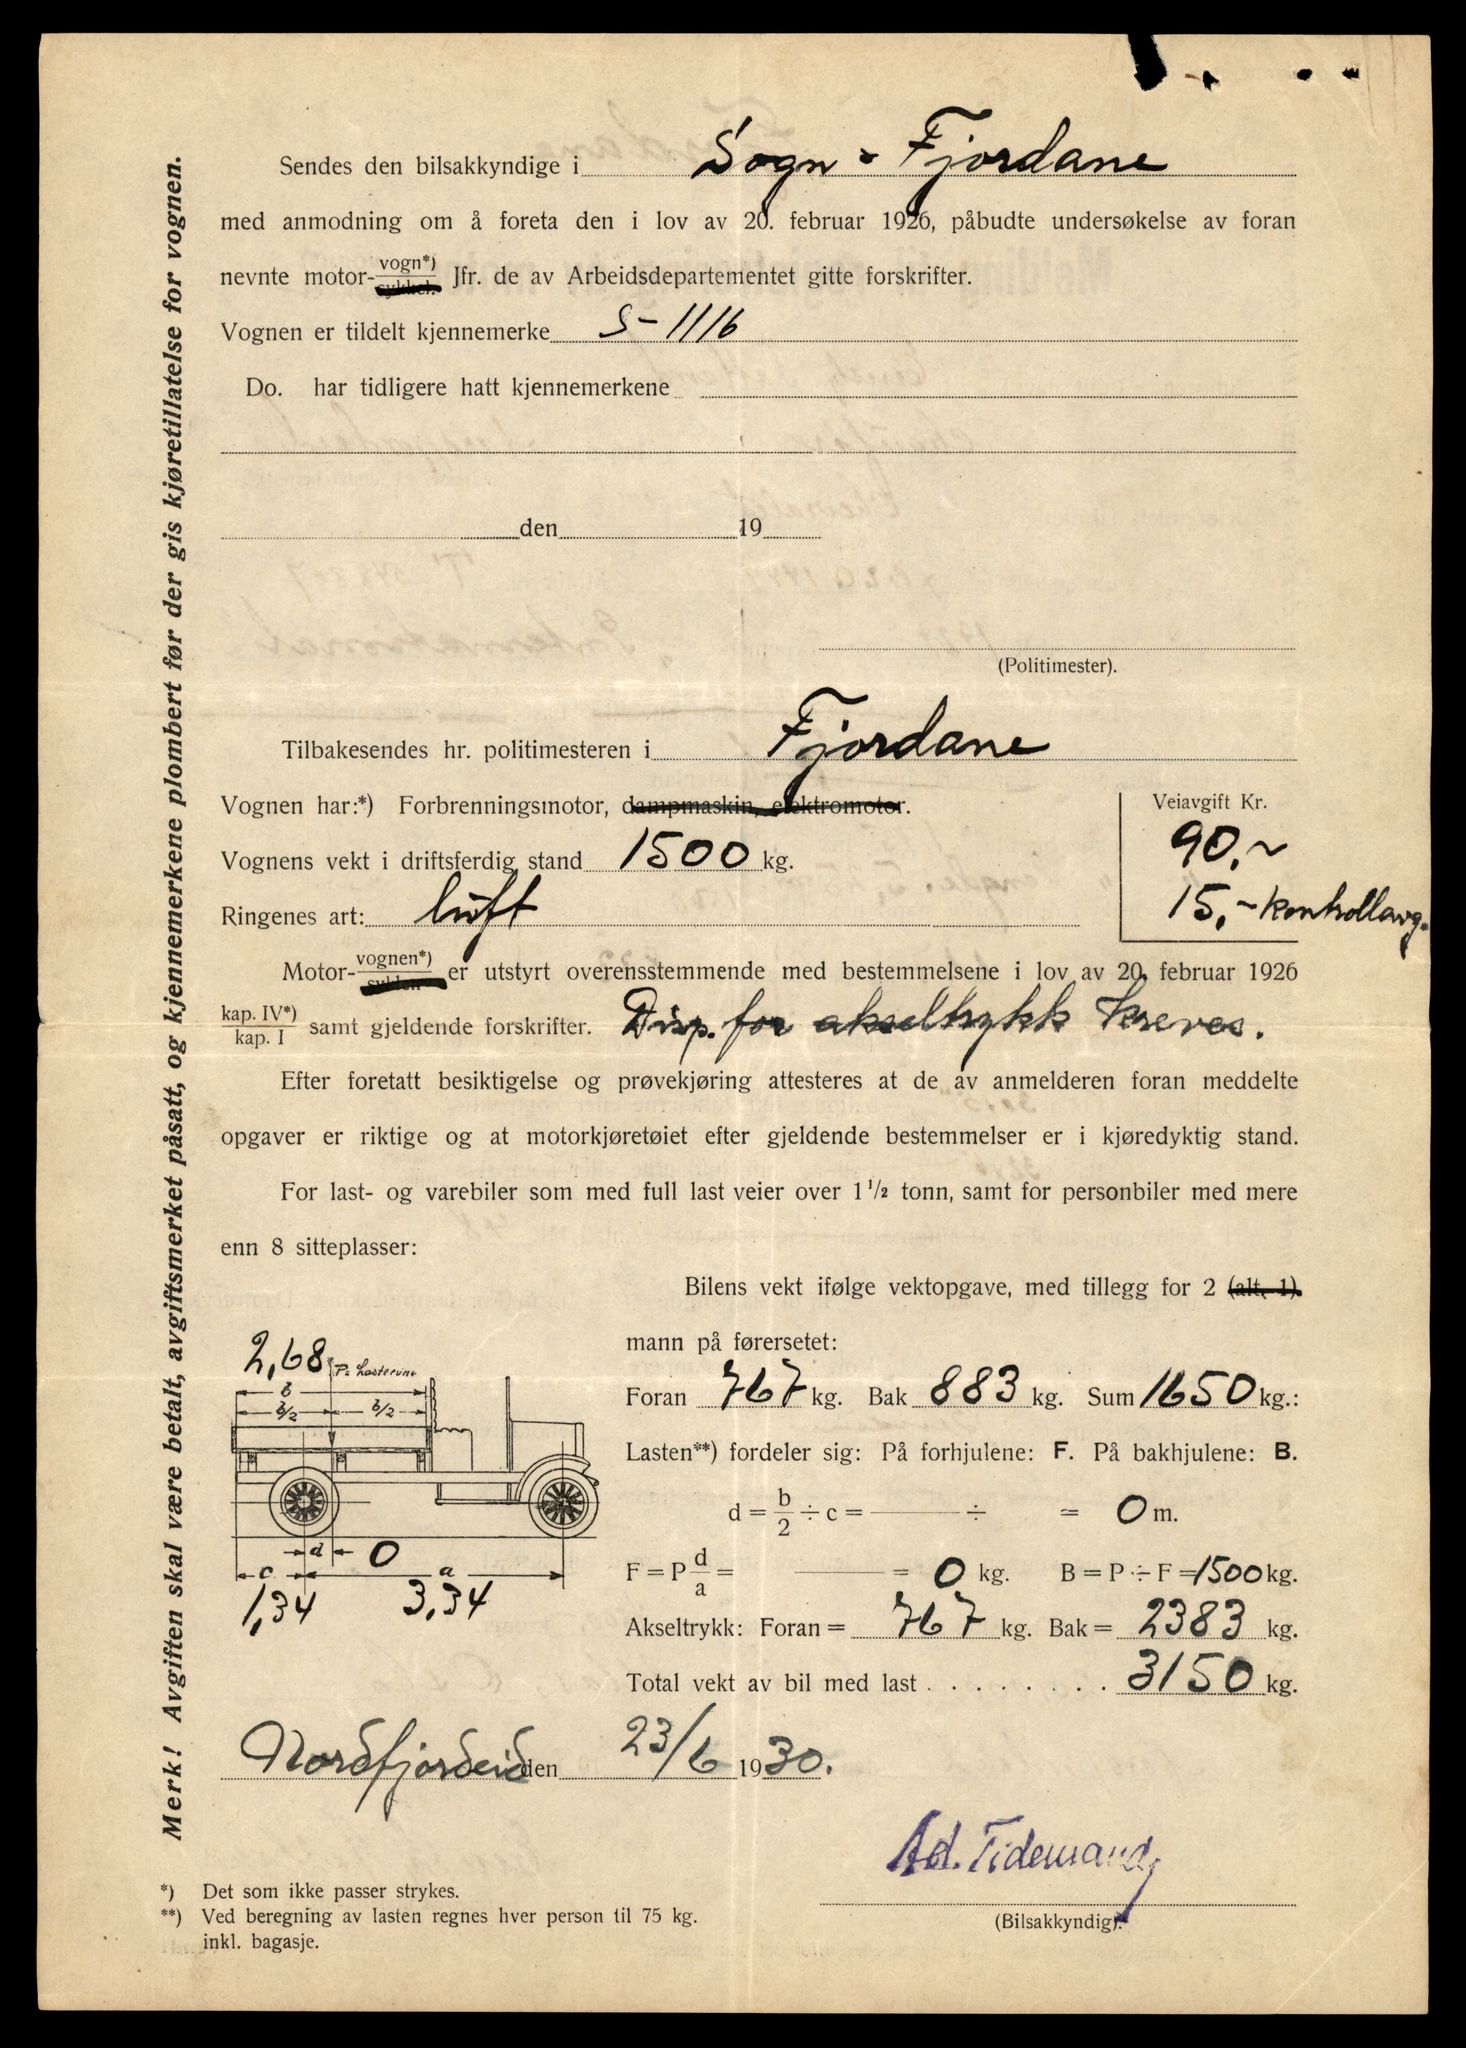 Sendes den bilsakkyndige i Sogn - Fjordane
med anmodning om å foreta den i lov av 20. februar 1926, påbudte undersøkelse av foran
nevnte motor-vogn*) sykkel. Jfr. de av Arbeidsdepartementet gitte forskrifter.
Vognen er tildelt kjennemerke S-1116
Do. har tidligere hatt kjennemerkene
den 19
(Politimester).
Tilbakesendes hr. politimesteren i Fjordane
Vognen har:*) Forbrenningsmotor, dampmaskin, elektromotor.
Veiavgift Kr.
90,~
Vognens vekt i driftsferdig stand 1500 kg.
15,- kontrollavg.
Ringenes art: luft
Motor-vognen*) sykkelen er utstyrt overensstemmende med bestemmelsene i lov av 20. februar 1926
kap. IV*) kap. I samt gjeldende forskrifter. Disp. for akseltrykk kreves.
Efter foretatt besiktigelse og prøvekjøring attesteres at de av anmelderen foran meddelte
opgaver er riktige og at motorkjøretøiet efter gjeldende bestemmelser er i kjøredyktig stand.
For last- og varebiler som med full last veier over 1 1/2 tonn, samt for personbiler med mere
enn 8 sitteplasser:
Bilens vekt ifølge vektopgave, med tillegg for 2 (alt. 1).
mann på førersetet:
Foran 767 kg. Bak 883 kg. Sum 1650 kg.:
Lasten**) fordeler sig: På forhjulene: F. På bakhjulene: B.
d = b/2 ÷ c = ÷ = 0 m.
F = P d/a = = 0 kg. B = P ÷ F = 1500 kg.
Akseltrykk: Foran = 767 kg. Bak = 2383 kg.
Total vekt av bil med last . . . . . . . . 3150 kg.
2,68
P = Lastevekt
b
b/2 b/2
d 0
c a
1,34 3,34
Nordfjordeid den 23/6 1930.
Ad. Tidemand
(Bilsakkyndig).
*) Det som ikke passer strykes.
**) Ved beregning av lasten regnes hver person til 75 kg.
inkl. bagasje.
Merk! Avgiften skal være betalt, avgiftsmerket påsatt, og kjennemerkene plombert før der gis kjøretillatelse for vognen.